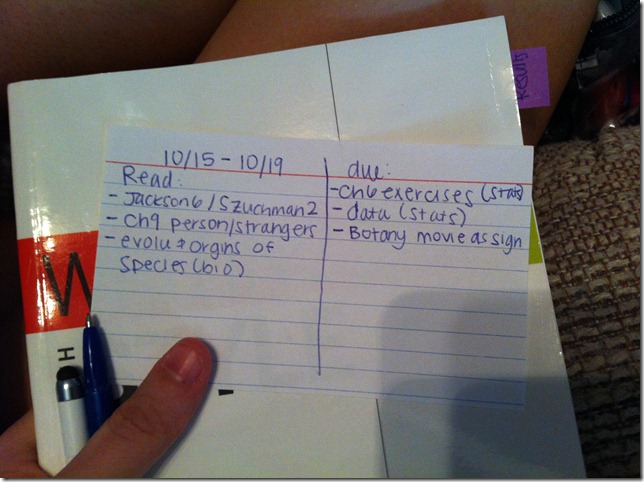 10/15 - 10/19
Read:
- Jackson6/Szuchman2
- Ch9 person/strangers
- evolu + Orgins of
Species (bio)
due:
- Ch6 exercises (stats)
- data (stats)
- Botany movie assign
Results
W
H